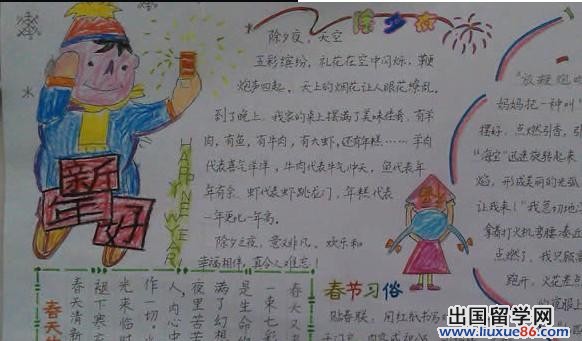 除夕夜
除夕夜，天空
五彩缤纷，礼花在空中闪烁，鞭
炮声四起，天上的烟花让人眼花缭乱。
到了晚上，我家的桌上摆满了美味佳肴，有羊
肉，有鱼，有牛肉，有大虾，还有年糕……羊肉
代表喜气洋洋，牛肉代表牛气冲天，鱼代表年
年有余，虾代表虾跳龙门，年糕代表
一年更比一年高。
除夕之夜，意义非凡，欢乐和
幸福相伴，真令人难忘！
新
年
好
HAPPY NEW YEAR!
"放鞭炮
妈妈花一种叫
摆好，点燃引香，
"海宝"迅速旋转起来
焰，形成美丽的光弧
让我来！"我急切地
拿着打火机
点燃了，我只顾
跑开，火花差点
春节习俗
贴春联，用红纸书写
春天的
春天又
一束七彩
是生命的
满了幻想
夜里苦苦
人，内心中
作一切
光来临时
褪下寒
春天清新
出国留学网
www.liuxue86.com